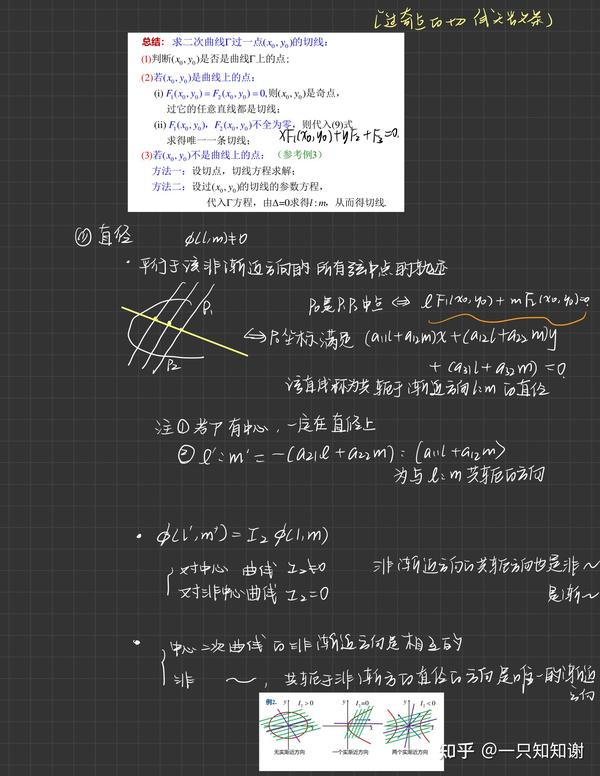 (过奇点的切线有无数条)
总结：求二次曲线Γ过一点(x₀, y₀)的切线：
(1)判断(x₀, y₀)是否是曲线Γ上的点;
(2)若(x₀, y₀)是曲线上的点：
(i) F₁(x₀, y₀) = F₂(x₀, y₀) = 0,则(x₀, y₀)是奇点，
过它的任意直线都是切线；
(ii) F₁(x₀, y₀)，F₂(x₀, y₀)不全为零，则代入(9)式
求得唯一一条切线； xF₁(x₀,y₀)+yF₂+F₃=0.
(3)若(x₀, y₀)不是曲线上的点：（参考例3）
方法一：设切点，切线方程求解；
方法二：设过(x₀, y₀)的切线的参数方程，
代入Γ方程，由Δ=0求得l : m，从而得切线.
直径 φ(l,m)≠0
· 平行于该非渐近方向的所有弦中点的轨迹
P₁
P₂
P₀是P₁P₂中点 ⇔ lF₁(x₀,y₀) + mF₂(x₀,y₀)=0
⇔ P₀坐标满足 (a₁₁l+a₁₂m)x+(a₁₂l+a₂₂m)y
+ (a₃₁l+a₃₂m) = 0.
该直线称为共轭于渐近方向l:m的直径
注①若Γ有中心，一定在直径上
② l':m' = -(a₂₁l+a₂₂m):(a₁₁l+a₁₂m)
为与l:m共轭的方向
· φ(l',m') = I₂ φ(l,m)
对中心曲线 I₂≠0 非渐近方向的共轭方向也是非～
对非中心曲线 I₂=0 是渐～
· 中心二次曲线的非渐近方向是相互的
非 ～，共轭于非渐方向直径的方向是唯一的渐近
方向
例2.
y I₂>0 y I₂=0 y I₂<0
x x x
无实渐近方向 一个实渐近方向 两个实渐近方向
知乎 @一只知知谢